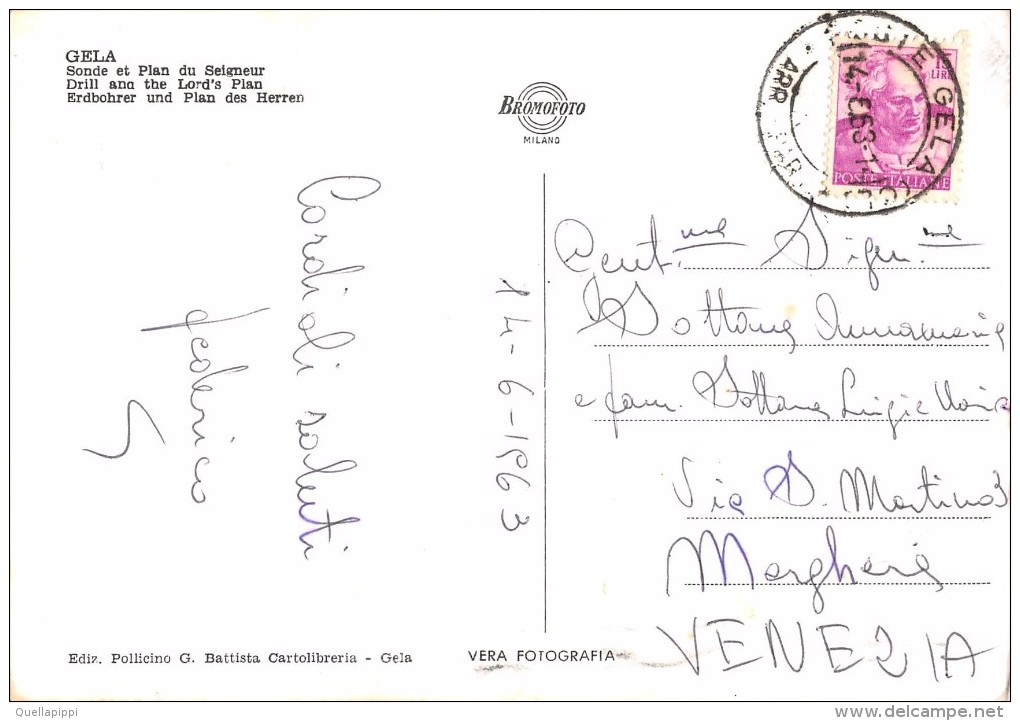 GELA
Sonde et Plan du Seigneur
Drill and the Lord's Plan
Erdbohrer und Plan des Herren
BROMOFOTO
MILANO
15
LIRE
POSTE ITALIANE
GELA
14-6 63-1
ARR
Cordiali saluti
Federico
14-6-1963
Gent.me Sign.me
Sottana Annamaria
e fam. Sottana Luigia Maria
Via S. Martino 3
Marghera
VENEZIA
Ediz. Pollicino G. Battista Cartolibreria - Gela
VERA FOTOGRAFIA
Quellapippi
delcampe.net